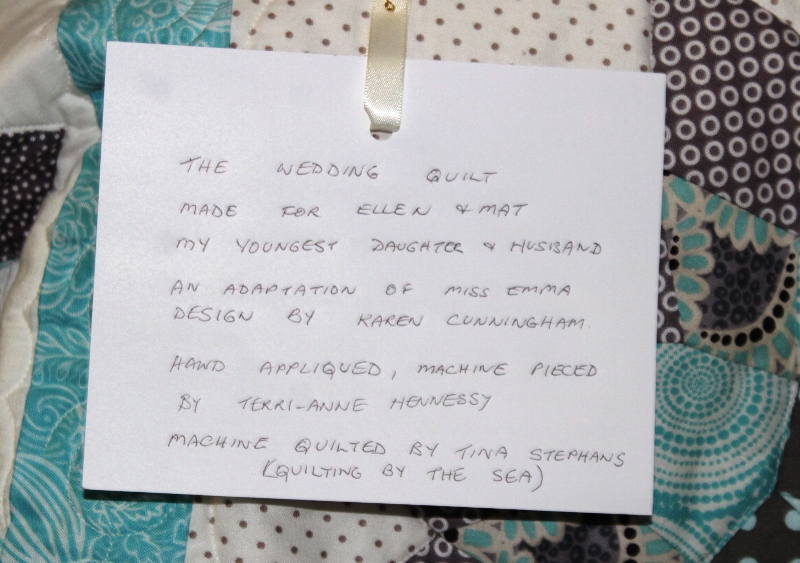 THE WEDDING QUILT
MADE FOR ELLEN & MAT
MY YOUNGEST DAUGHTER & HUSBAND
AN ADAPTATION OF MISS EMMA
DESIGN BY KAREN CUNNINGHAM
HAND APPLIQUED, MACHINE PIECED
BY TERRI-ANNE HENNESSY
MACHINE QUILTED BY TINA STEPHANS
(QUILTING BY THE SEA)